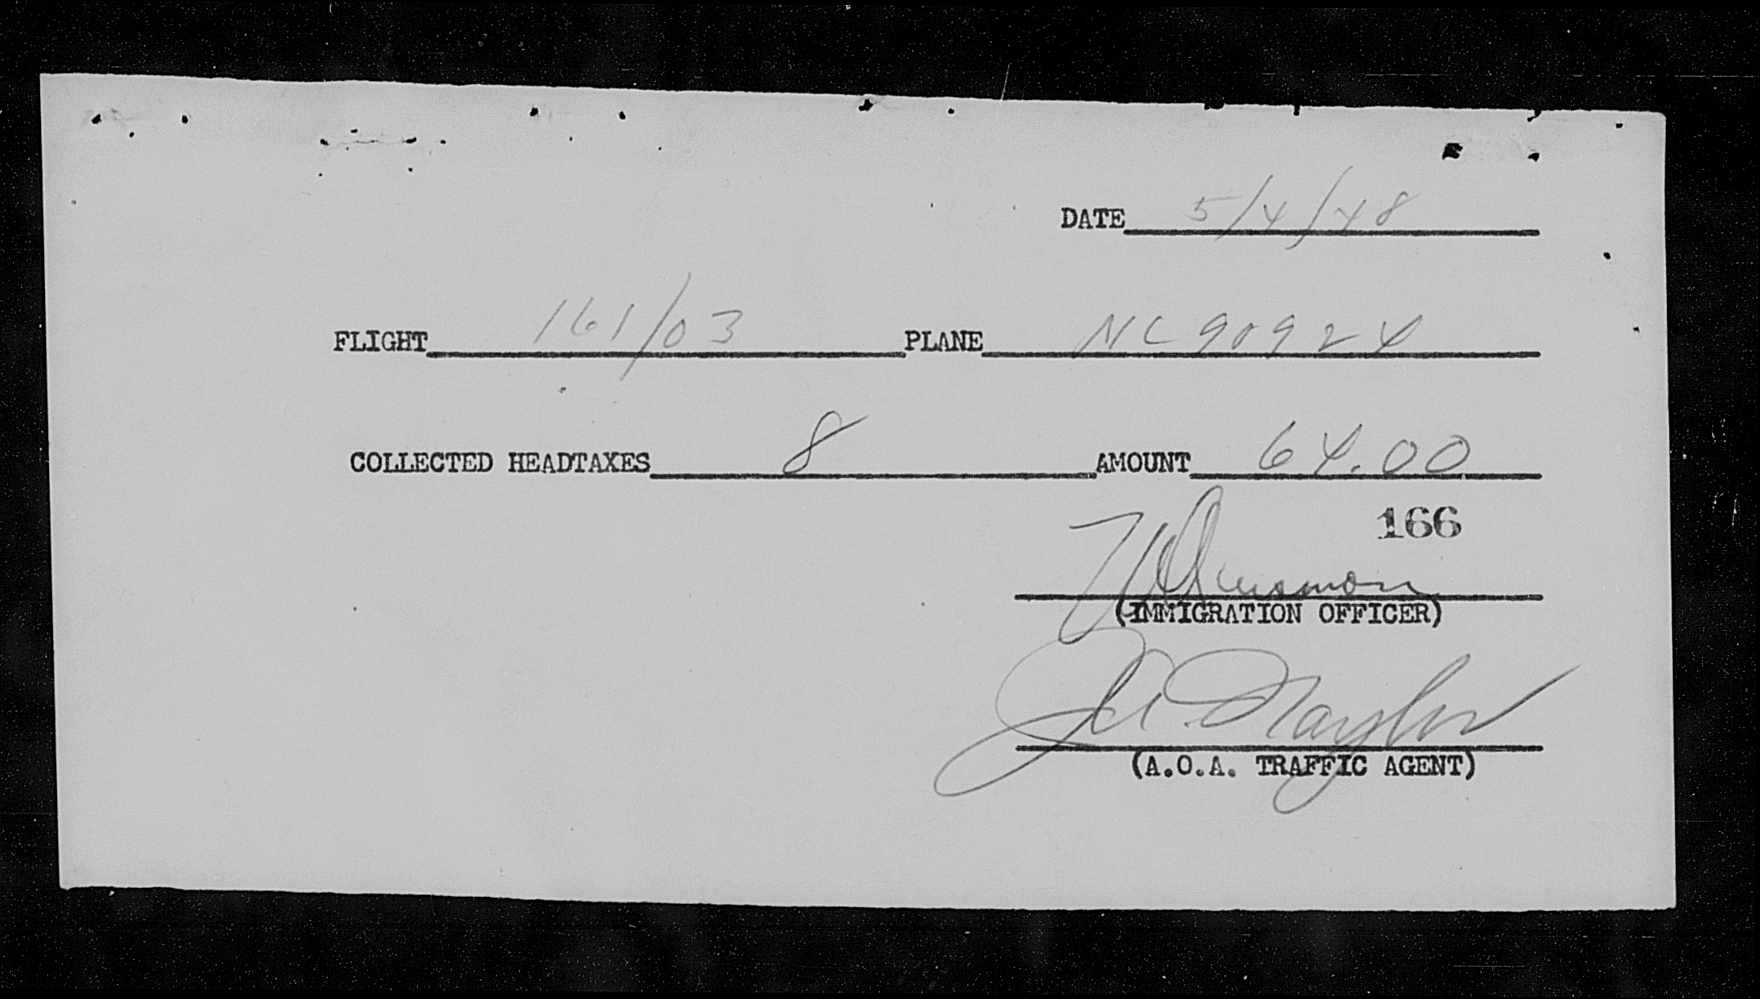 DATE 5/4/48
FLIGHT 161/03 PLANE NC 90924
COLLECTED HEADTAXES 8 AMOUNT 64.00
166
(IMMIGRATION OFFICER)
Naylor
(A.O.A. TRAFFIC AGENT)